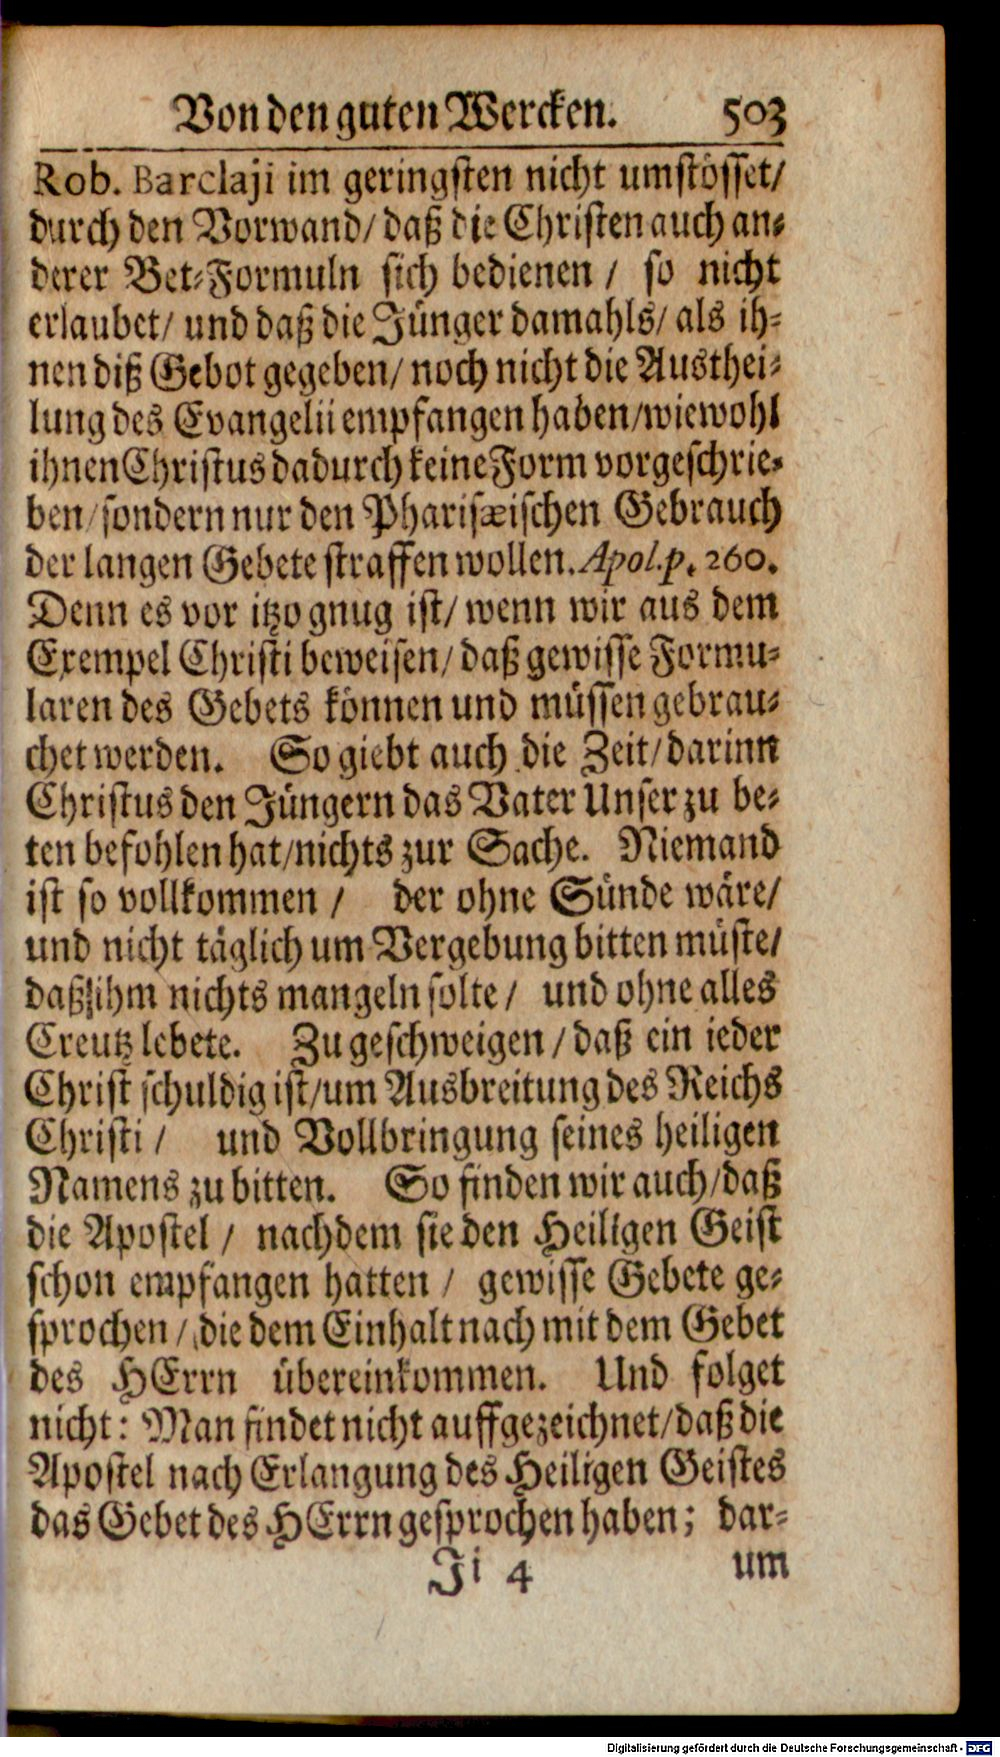 Von den guten Wercken. 503
Rob. Barclaji im geringsten nicht umstösset/
durch den Vorwand/ daß die Christen auch an-
derer Bet-Formuln sich bedienen / so nicht
erlaubet/ und daß die Jünger damahls/ als ih-
nen diß Gebot gegeben/ noch nicht die Austhei-
lung des Evangelii empfangen haben/wiewohl
ihnen Christus dadurch keine Form vorgeschrie-
ben/sondern nur den Pharisæischen Gebrauch
der langen Gebete straffen wollen. Apol. p. 260.
Denn es vor itzo gnug ist/ wenn wir aus dem
Exempel Christi beweisen/ daß gewisse Formu-
laren des Gebets können und müssen gebrau-
chet werden. So giebt auch die Zeit/ darinn
Christus den Jüngern das Vater Unser zu be-
ten befohlen hat/nichts zur Sache. Niemand
ist so vollkommen / der ohne Sünde wäre/
und nicht täglich um Vergebung bitten müste/
daß ihm nichts mangeln solte / und ohne alles
Creutz lebete. Zu geschweigen / daß ein ieder
Christ schuldig ist/um Ausbreitung des Reichs
Christi / und Vollbringung seines heiligen
Namens zu bitten. So finden wir auch/daß
die Apostel / nachdem sie den Heiligen Geist
schon empfangen hatten / gewisse Gebete ge-
sprochen / die dem Einhalt nach mit dem Gebet
des HErrn übereinkommen. Und folget
nicht: Man findet nicht auffgezeichnet/daß die
Apostel nach Erlangung des Heiligen Geistes
das Gebet des HErrn gesprochen haben; dar-
Ji 4 um
Digitalisierung gefördert durch die Deutsche Forschungsgemeinschaft - DFG